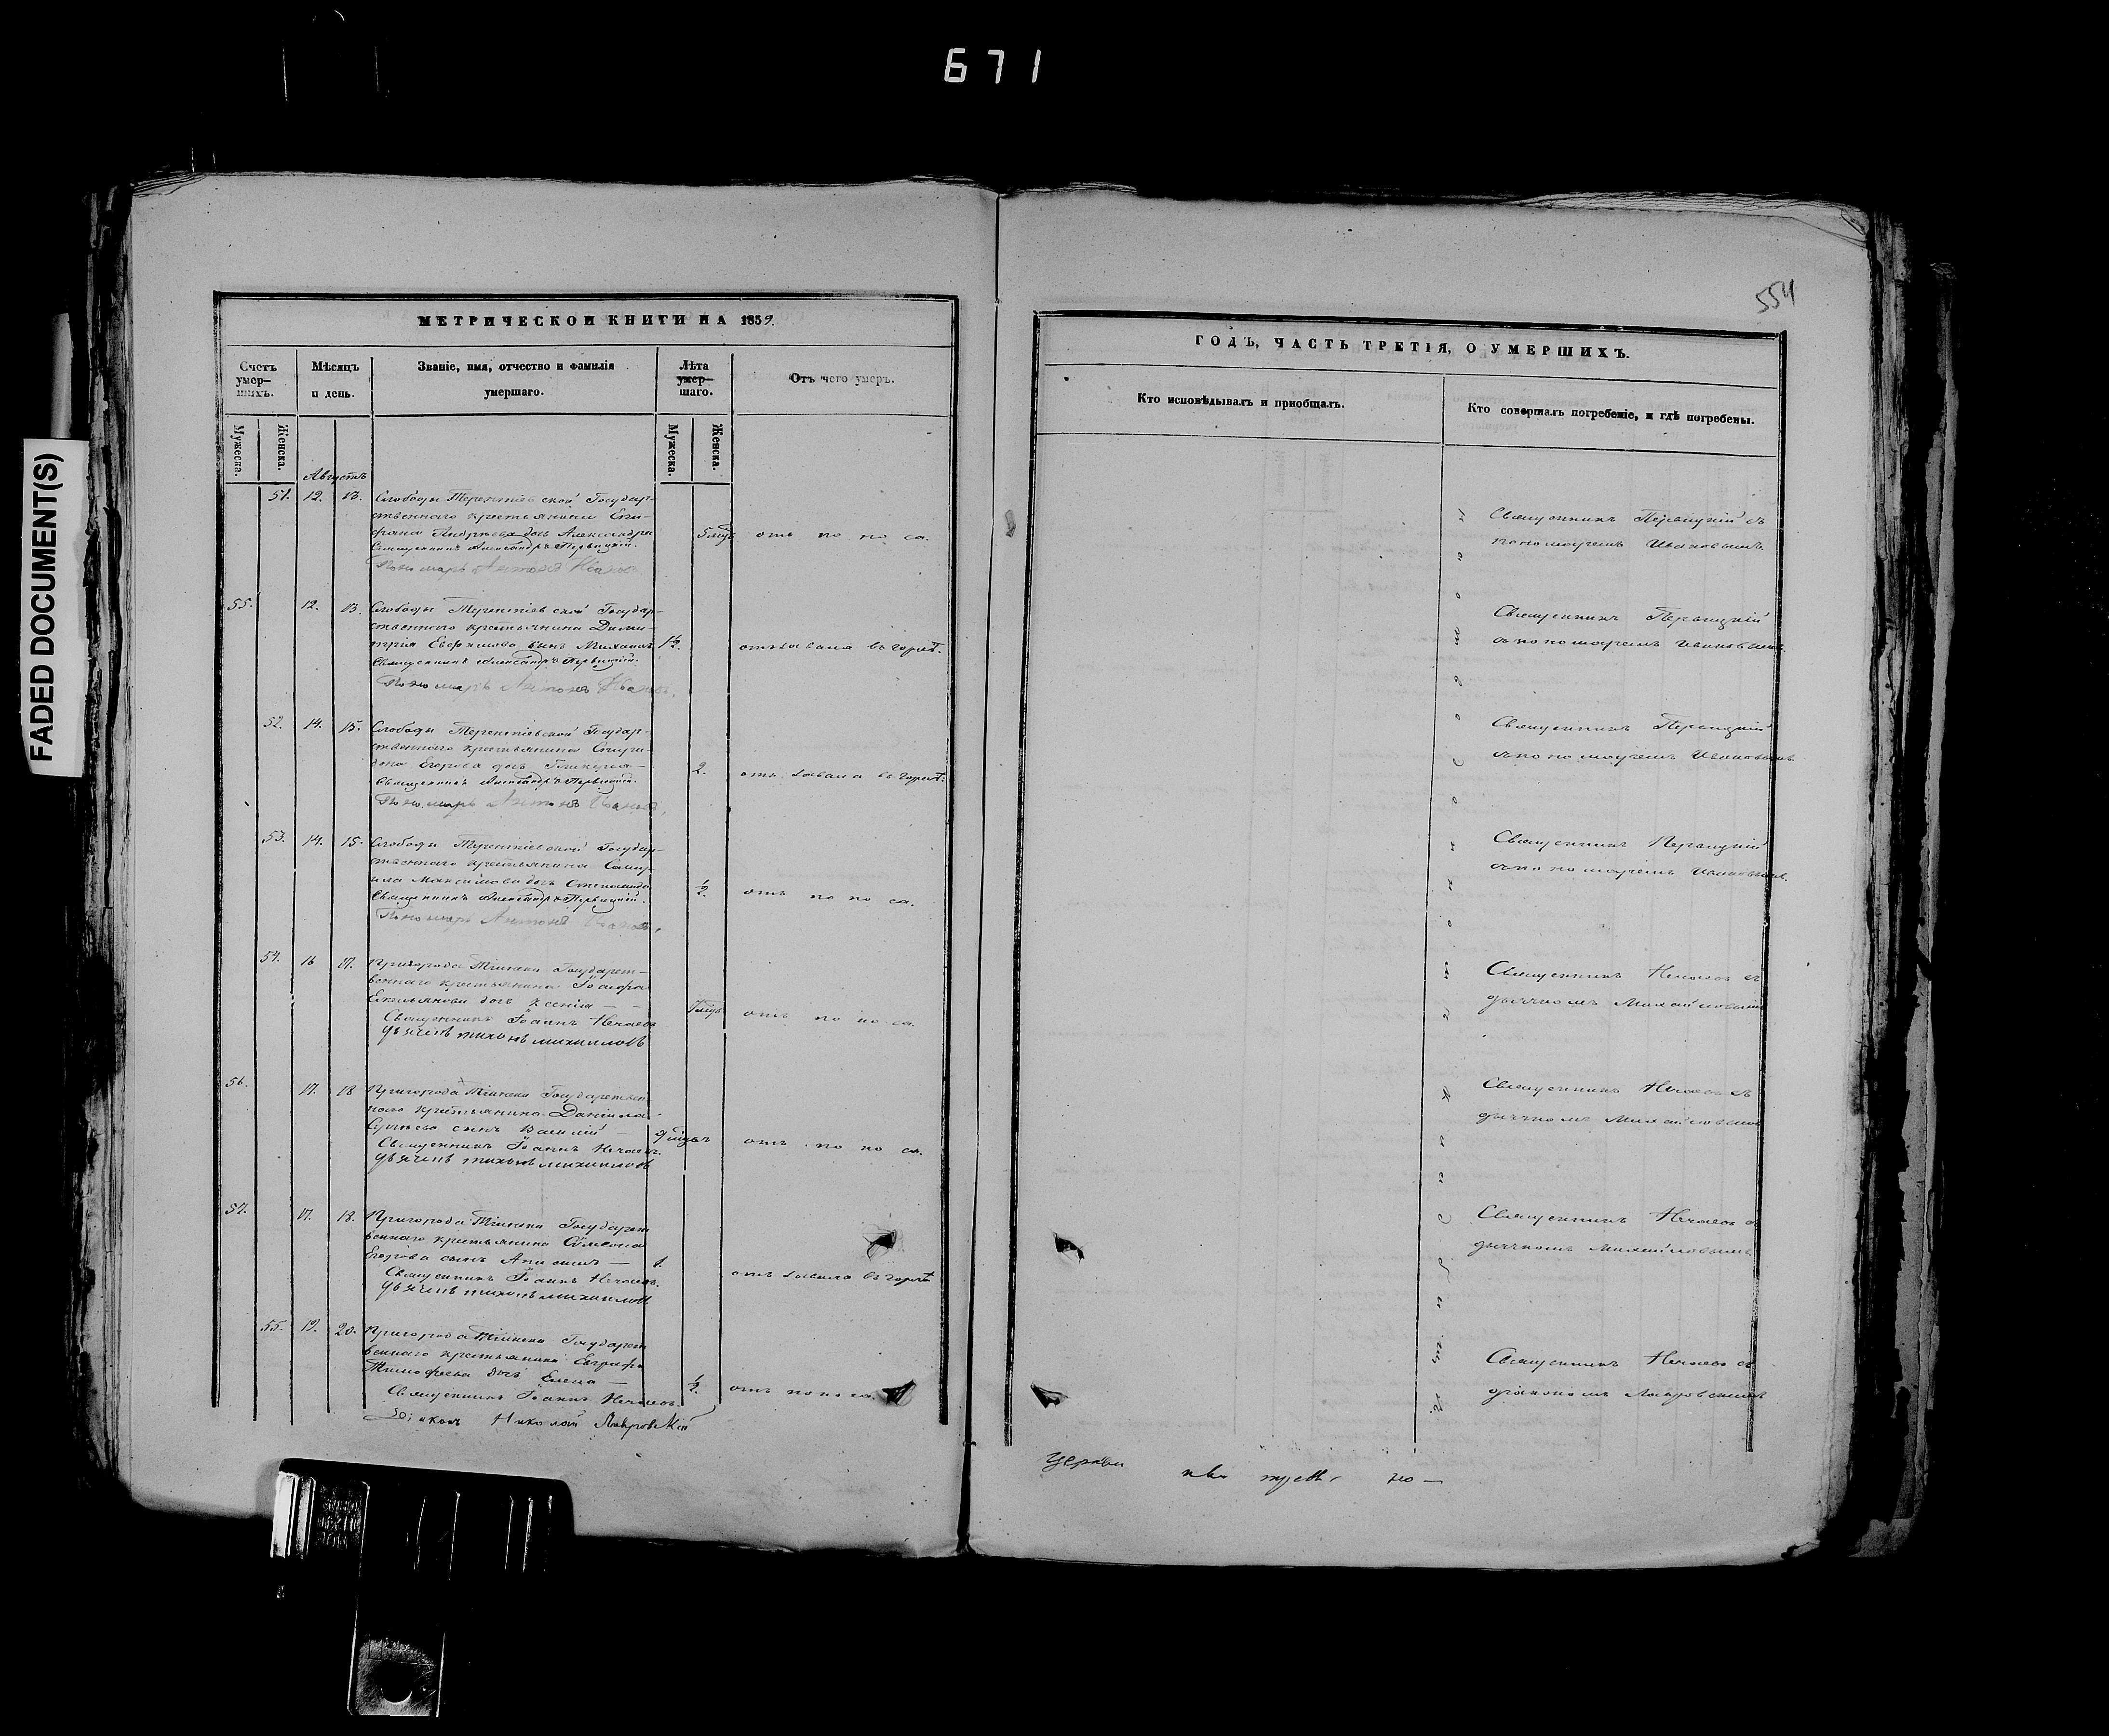 671
FADED DOCUMENT(S)
554
МЕТРИЧЕСКОЙ КНИГИ НА 1859.
Счетъ умер-шихъ.
Мѣсяцъ и день.
Званіе, имя, отчество и фамилія умершаго.
Лѣта умер-шаго.
Отъ чего умеръ.
Мужеска.
Женска.
Мужеска.
Женска.
Августъ
51. 12. 13. Слободы Терентіевской Государ-
ственнаго крестьянина Епи-
фана Андреева дочь Александра
Священникъ Александръ Первицкій.
Пономарь Антонъ Ивановъ
5 мцъ отъ поноса.
55. 12. 13. Слободы Терентіевской Государ-
ственнаго крестьянина Дими-
трія Евфимова сынъ Михаилъ
Священникъ Александръ Первицкій.
Пономарь Антонъ Ивановъ.
1½. въ горлѣ.
52. 14. 15. Слободы Терентіевской Государ-
ственнаго крестьянина Спири-
дона Егорова дочь Гликерія
Священникъ Александръ Первицкій.
Пономарь Антонъ Ивановъ
2. въ горлѣ.
53. 14. 15. Слободы Терентіевской Государ-
ственнаго крестьянина Саму-
ила Максимова дочь Степанида
Священникъ Александръ Первицкій.
Пономарь Антонъ Ивановъ
½. отъ поноса.
54. 16 17. Пригорода Тіинска Государст-
веннаго крестьянина Іосифа
Емельянова дочь Ксенія
Священникъ Іоаннъ Нечаевъ
дьячекъ тихонъ михаиловъ
отъ поноса.
56. 17. 18 Пригорода Тіинска Государствен-
наго крестьянина Даніила
Сергѣева сынъ Василій
Священникъ Іоаннъ Нечаевъ.
дьячекъ тихонъ михаиловъ
отъ поноса.
57. 17. 18. Пригорода Тіинска Государст
веннаго крестьянина Сѵмеона
Егорова сынъ
Священникъ Іоаннъ Нечаевъ.
дьячекъ тихонъ михаиловъ
1. въ горлѣ
55. 19. 20. Пригорода Тіинска Государст
веннаго крестьянина Евграфа
Тимофеева дочь Елена
Священникъ Іоаннъ Нечаевъ.
Діаконъ Николай Лавровскій
½. отъ поноса.
ГОДЪ, ЧАСТЬ ТРЕТІЯ, О УМЕРШИХЪ.
Кто исповѣдывалъ и пріобщалъ.
Кто совершалъ погребеніе, и гдѣ погребены.
Священникъ Первицкій съ
пономаремъ Ивановымъ.
Священникъ Первицкій
съ пономаремъ Ивановымъ.
Священникъ Первицкій
съ пономаремъ Ивановымъ
Священникъ Первицкій
съ пономаремъ Ивановымъ.
Священникъ Нечаевъ съ
дьячкомъ Михайловымъ
Священникъ Нечаевъ съ
дьячкомъ Михайловымъ
Священникъ Нечаевъ съ
дьячкомъ Михайловымъ
Священникъ Нечаевъ съ
діакономъ Лавровскимъ